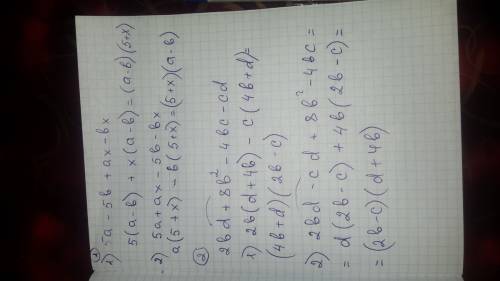 ①
1) 5a - 5b + ax - bx
5(a-b) + x(a-b) = (a-b)(5+x)
2) 5a + ax - 5b - bx
a(5+x) - b(5+x) = (5+x)(a-b)
②
2bd + 8b² - 4bc - cd
1) 2b(d+4b) - c(4b+d) =
(4b+d)(2b-c)
2) 2bd - cd + 8b² - 4bc =
= d(2b-c) + 4b(2b-c) =
= (2b-c)(d+4b)